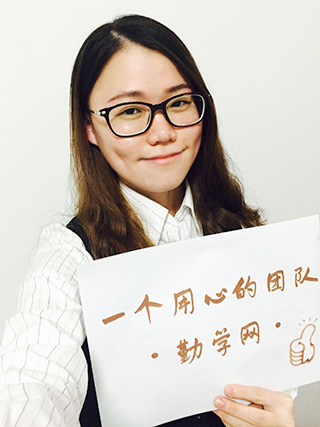 一个用心的团队
·勤学网·